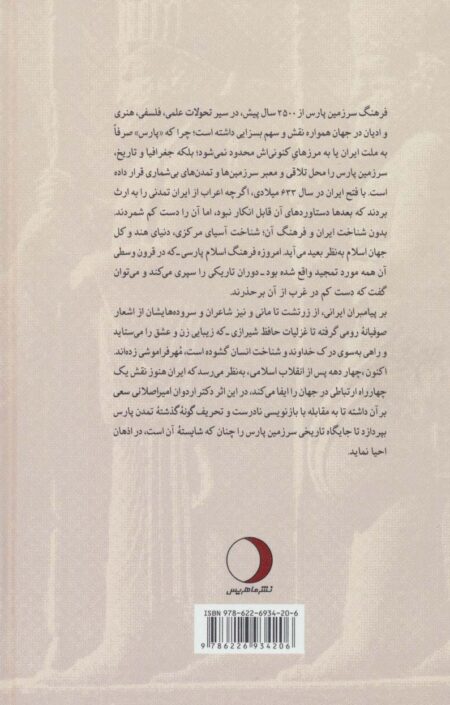 فرهنگ سرزمین پارس از ۲۵۰۰ سال پیش، در سیر تحولات علمی، فلسفی، هنری
و ادیان در جهان همواره نقش و سهم بسزایی داشته است؛ چرا که «پارس» صرفاً
به ملت ایران یا به مرزهای کنونی‌اش محدود نمی‌شود؛ بلکه جغرافیا و تاریخ،
سرزمین پارس را محل تلاقی و معبر سرزمین‌ها و تمدن‌های بی‌شماری قرار داده
است. با فتح ایران در سال ۶۳۳ میلادی، اگرچه اعراب از ایران تمدنی را به ارث
بردند که بعدها دستاوردهای آن قابل انکار نبود، اما آن را دست کم شمردند.
بدون شناخت ایران و فرهنگ آن؛ شناخت آسیای مرکزی، دنیای هند و کل
جهان اسلام به‌نظر بعید می‌آید. امروزه فرهنگ اسلام پارسی ـ که در قرون وسطی
آن همه مورد تمجید واقع شده بود ـ دوران تاریکی را سپری می‌کند و می‌توان
گفت که دست کم در غرب از آن برحذرند.
بر پیامبران ایرانی، از زرتشت تا مانی و نیز شاعران و سروده‌هایشان از اشعار
صوفیانۀ رومی گرفته تا غزلیات حافظ شیرازی ـ که زیبایی زن و عشق را می‌ستاید
و راهی به‌سوی درک خداوند و شناخت انسان گشوده است، مُهر فراموشی زده‌اند.
اکنون، چهار دهه پس از انقلاب اسلامی، به‌نظر می‌رسد که ایران هنوز نقش یک
چهارراه ارتباطی در جهان را ایفا می‌کند، در این اثر دکتر اردوان امیراصلانی سعی
بر آن داشته تا به مقابله با بازنویسی نادرست و تحریف گونۀ گذشتۀ تمدن پارس
بپردازد تا جایگاه تاریخی سرزمین پارس را چنان که شایستۀ آن است، در اذهان
احیا نماید.
نشر ماهریس
ISBN 978-622-6934-20-6
9 786226 934206